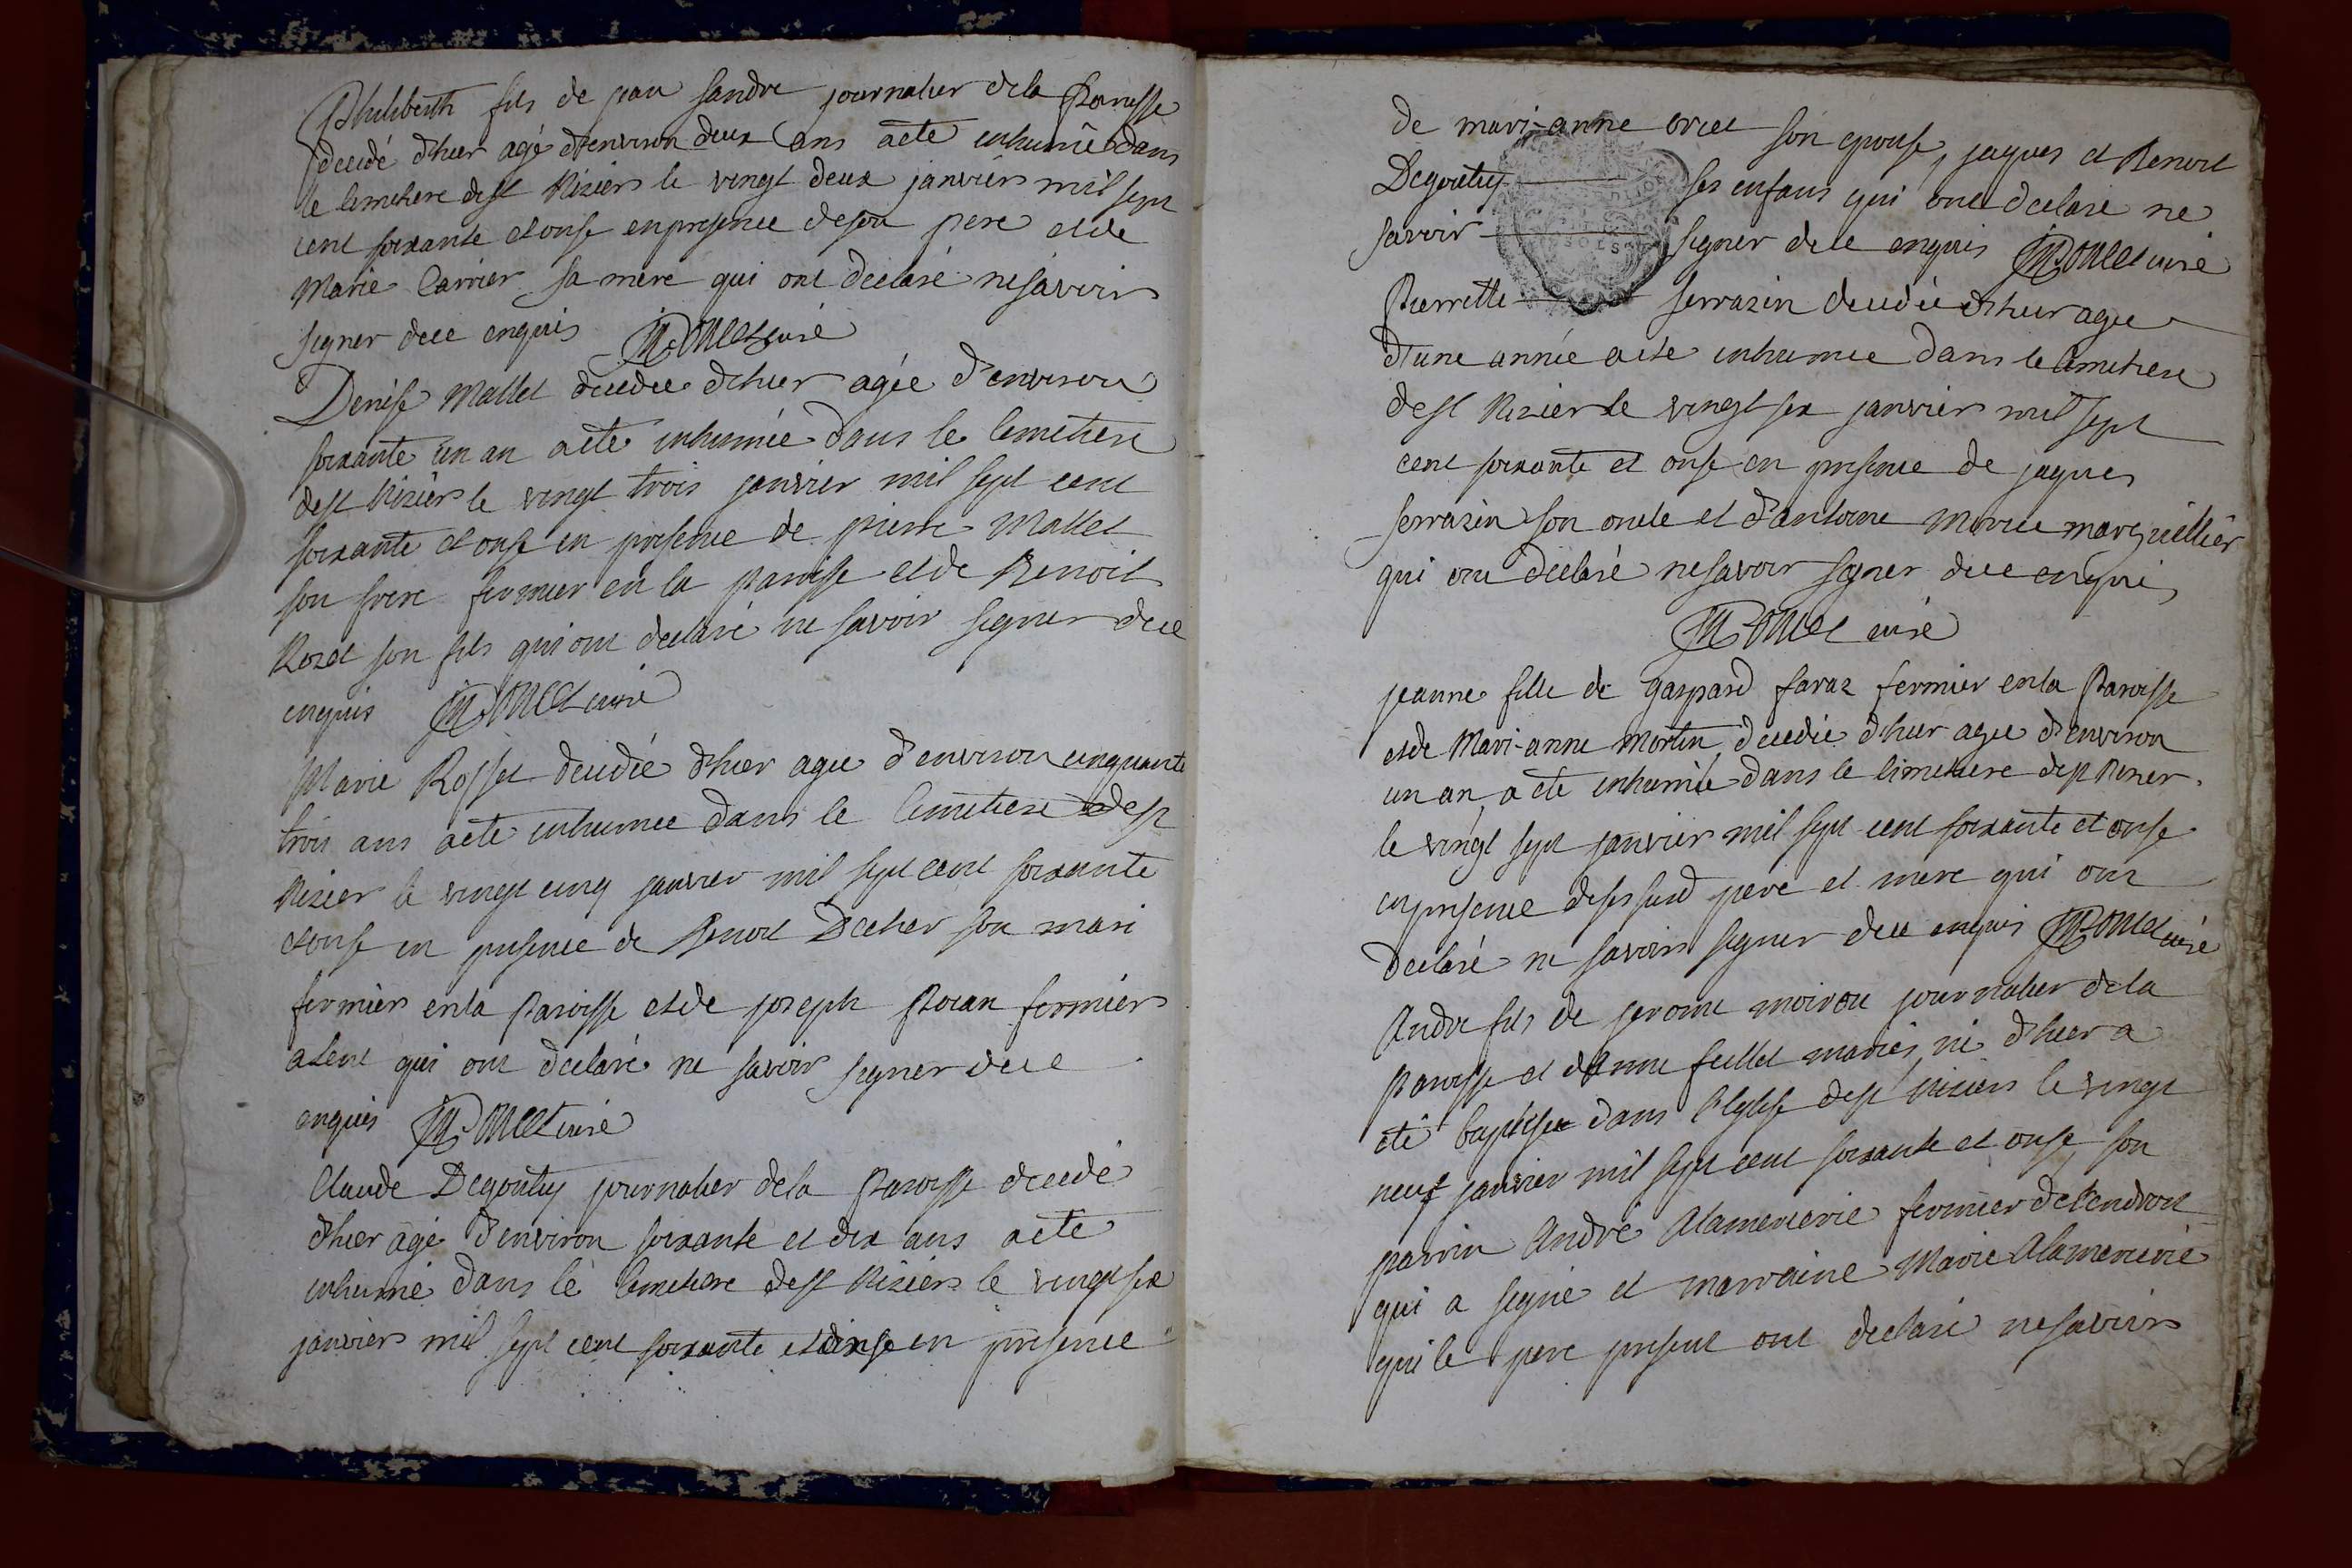 Philiberth fils de jean sandre journalier dela Paroisse
decedé d'hier agé denviron deux ans aété inhumé dans
le Cimetiere dest Nizier le vingt deux janvier mil sept
cent soixante et onse enpresence deson pere etde
Marie Carrier sa mere qui ont declaré nesavoir
signer dece enquis curé
Denise Mallet decedee d'hier agée d'environ
soixante un an aété inhumée dans le Cemetiere
dest Nizier le vingt trois janvier mil sept cent
soixante et onse en presence de pierre Mallet
son frere fermier en la paroisse etde Benoit
Rozet son fils qui ont declaré ne savoir signer dece
enquis curé
Marie Rosset decedée d'hier agee d'environ cinquante
trois ans aété inhumee dans le Cemetiere dest
Nizier le vingt cinq janvier mil sept cent soixante
etonse en presence de Benoit Decher son mari
fermier enla Paroisse etde joseph fermier
qui ont declaré ne savoir signer dece
enquis curé
Claude Degoutty journalier dela Paroisse decedé
d'hier agé d'environ soixante et dix ans aété
inhumé dans le Cimetiere dest Nizier le vingt six
janvier mil sept cent soixante etonse en presence
de mari-anne orcet son epouse, jaques et Benoit
Degoutty ses enfans qui ont declaré ne
savoir signer dece enquis curé
Pierrette serrazin decedée d'hier agee
d'une année aété inhumee dans le Cimetiere
dest Nizier le vingt six janvier mil sept
cent soixante et onse en presence de jaques
serrazin son oncle et d'antoine marguillier
qui ont declaré nesavoir signer dece enquis
curé
jeanne fille de gaspard favaz fermier enla Paroisse
etde Mari-anne Mortin decedée d'hier agee d'environ
un an a été inhumée dans le Cimetiere dest Nizier
le vingt sept janvier mil sept cent soixante et onse
enpresence desessusd pere et mere qui ont
declaré ne savoir signer dece enquis curé
André fils de jerome moirou journalier dela
Paroisse et d'anne feillet mariés, né d'hier a
été baptisé dans l'eglise dest Nizier le vingt
neuf janvier mil sept cent soixante et onse, son
parrin André Alamercerie fermier delendroit
qui a signé et marraine Marie Alamercerie
qui le pere present ont declaré nesavoir